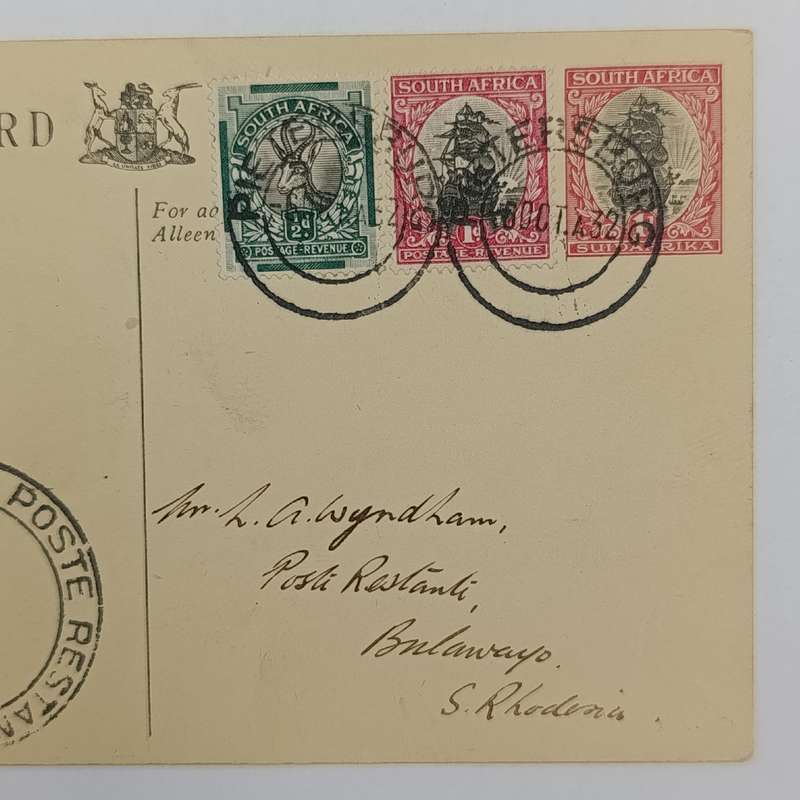 RD
SOUTH AFRICA
½d.
POSTAGE-REVENUE
SOUTH AFRICA
1D
POSTAGE-REVENUE
SOUTH AFRICA
1D
SUID-AFRIKA
PIETERSBURG
OCT 32
For ad
Alleen
POSTE RESTAN
Mr. L. A. Wyndham,
Poste Restante,
Bulawayo.
S. Rhodesia.